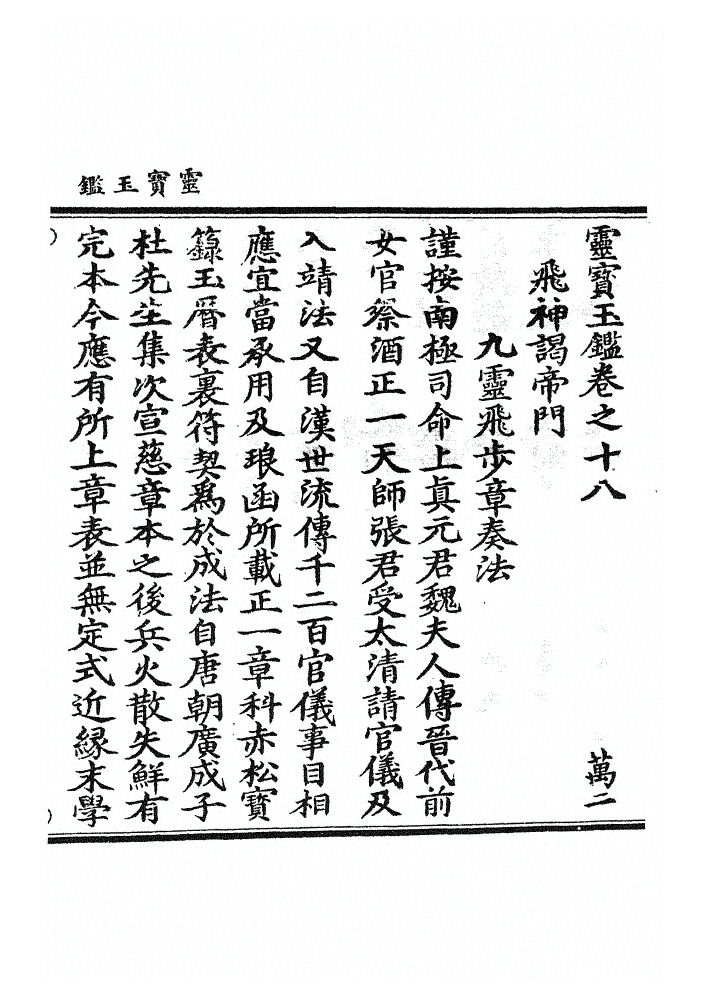 靈寶玉鑑
靈寶玉鑑卷之十八 萬二
飛神謁帝門
九靈飛步章奏法
謹按南極司命上眞元君魏夫人傳晉代前
女官祭酒正一天師張君受太清請官儀及
入靖法又自漢世流傳千二百官儀事目相
應宜當承用及琅函所載正一章科赤松寶
籙玉曆表裏符契爲於成法自唐朝廣成子
杜先生集次宣慈章本之後兵火散失鮮有
完本今應有所上章表並無定式近緣末學